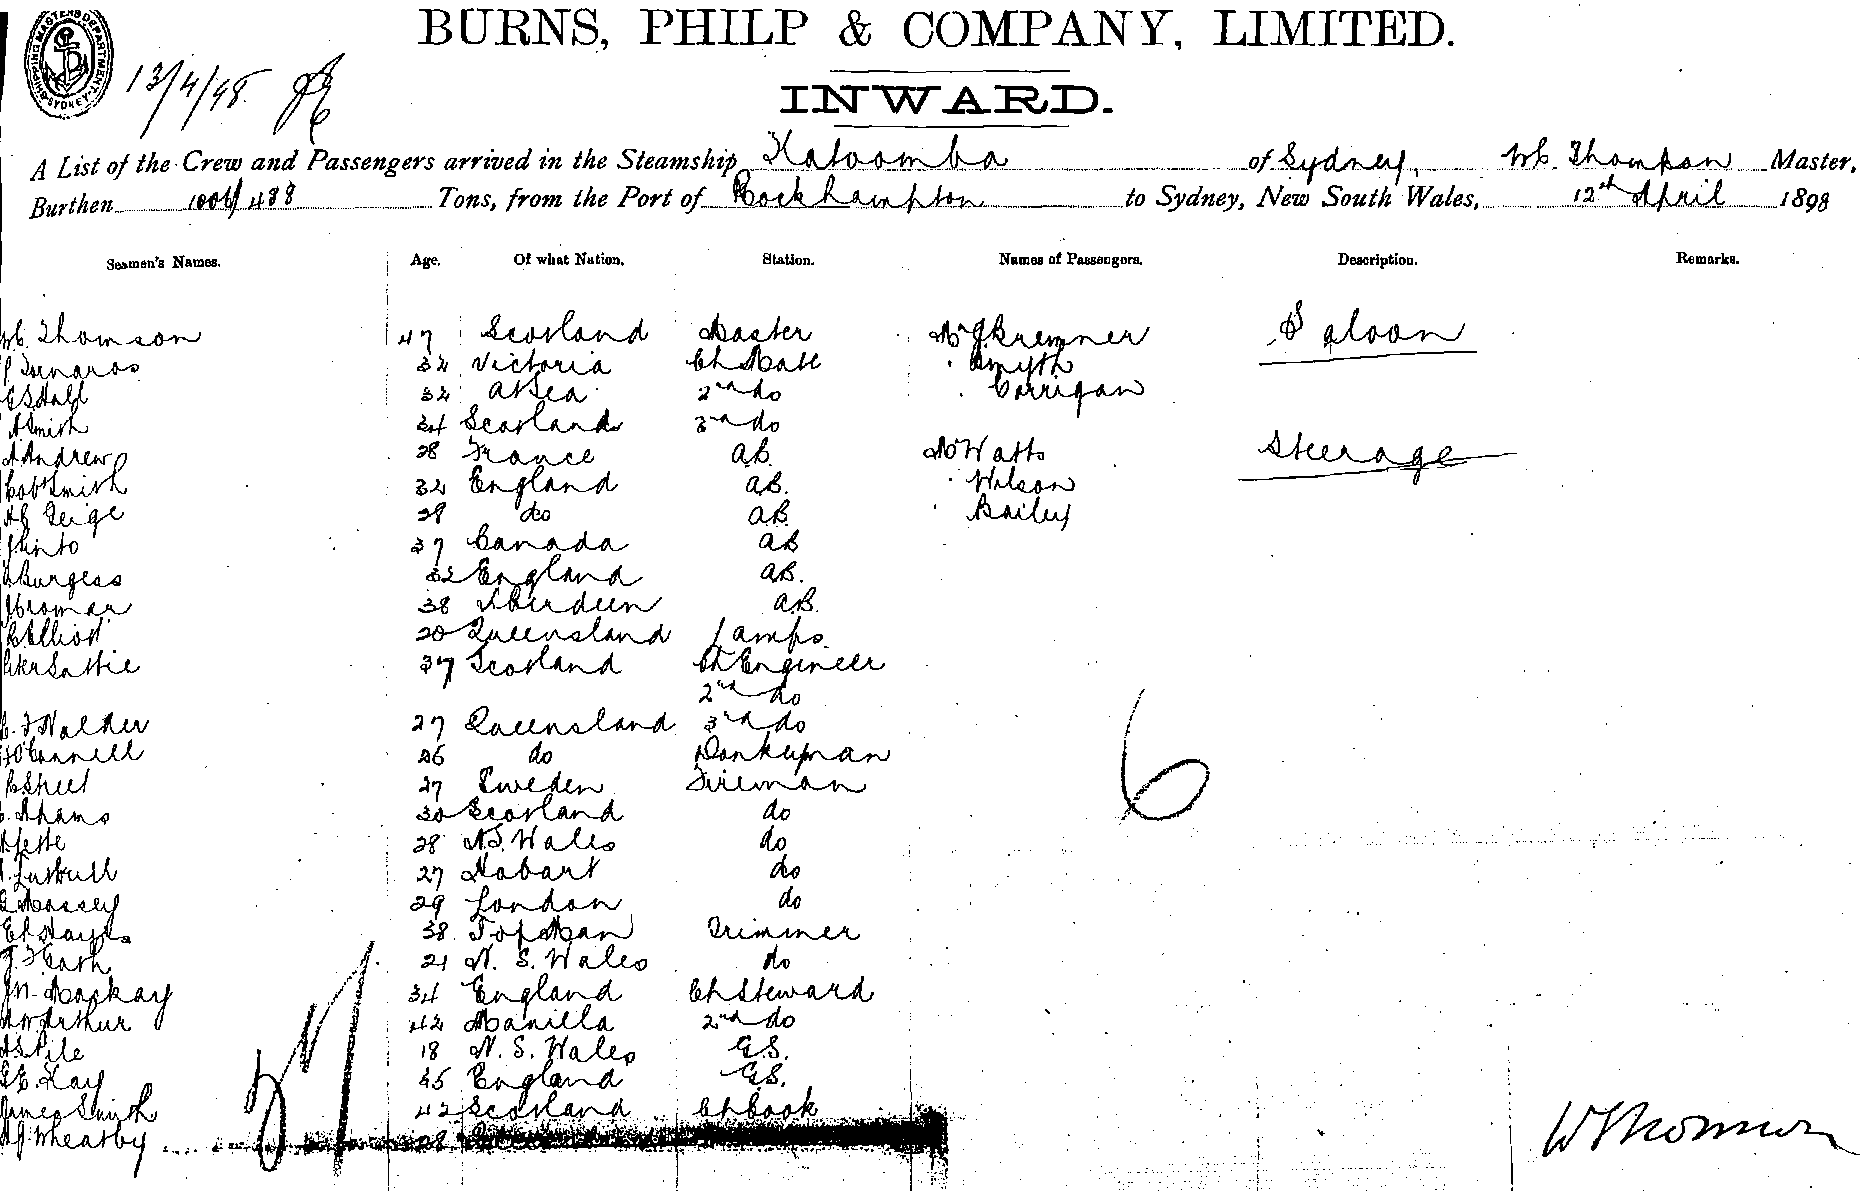 SHIPPING MASTERS DEPARTMENT SYDNEY
13/4/98
BURNS, PHILP & COMPANY, LIMITED.
INWARD.
A List of the Crew and Passengers arrived in the Steamship Katoomba of Sydney, Wm. Thomson Master,
Burthen 1006/488 Tons, from the Port of Rockhampton to Sydney, New South Wales, 12th April 1898
Seamen's Names. Age. Of what Nation. Station. Names of Passengers. Description. Remarks.
Thomson 47 Scotland Master Mr J Bremner Saloon
32 Victoria Ch Mate " Smyth
C S Hall 32 At Sea 2nd do " Corrigan
A Smith 34 Scotland 3rd do
A Andrew 28 France AB. Mr Watts Steerage
Robt Smith 32 England AB. " Wilson
28 do AB " Bailey
37 Canada AB
Burgess 32 England AB.
38 Aberdeen AB.
C Elliott 20 Queensland Lamps
Peter Lattie 37 Scotland Ch Engineer
2nd do
Walker 27 Queensland 3rd do
O'Connell 26 do Donkeyman
C Street 27 Sweden Fireman
Adams 30 Scotland do
28 N.S. Wales do
27 Hobart do
Massey 29 London do
38 Trimmer
21 N. S. Wales do
Mackay 34 England Ch Steward
McArthur 42 Manilla 2nd do
Pile 18 N. S. Wales G.S.
Kay 35 England G.S.
James Smith 42 Scotland Ch Cook
Wheatby 28
6
27
W Thomson